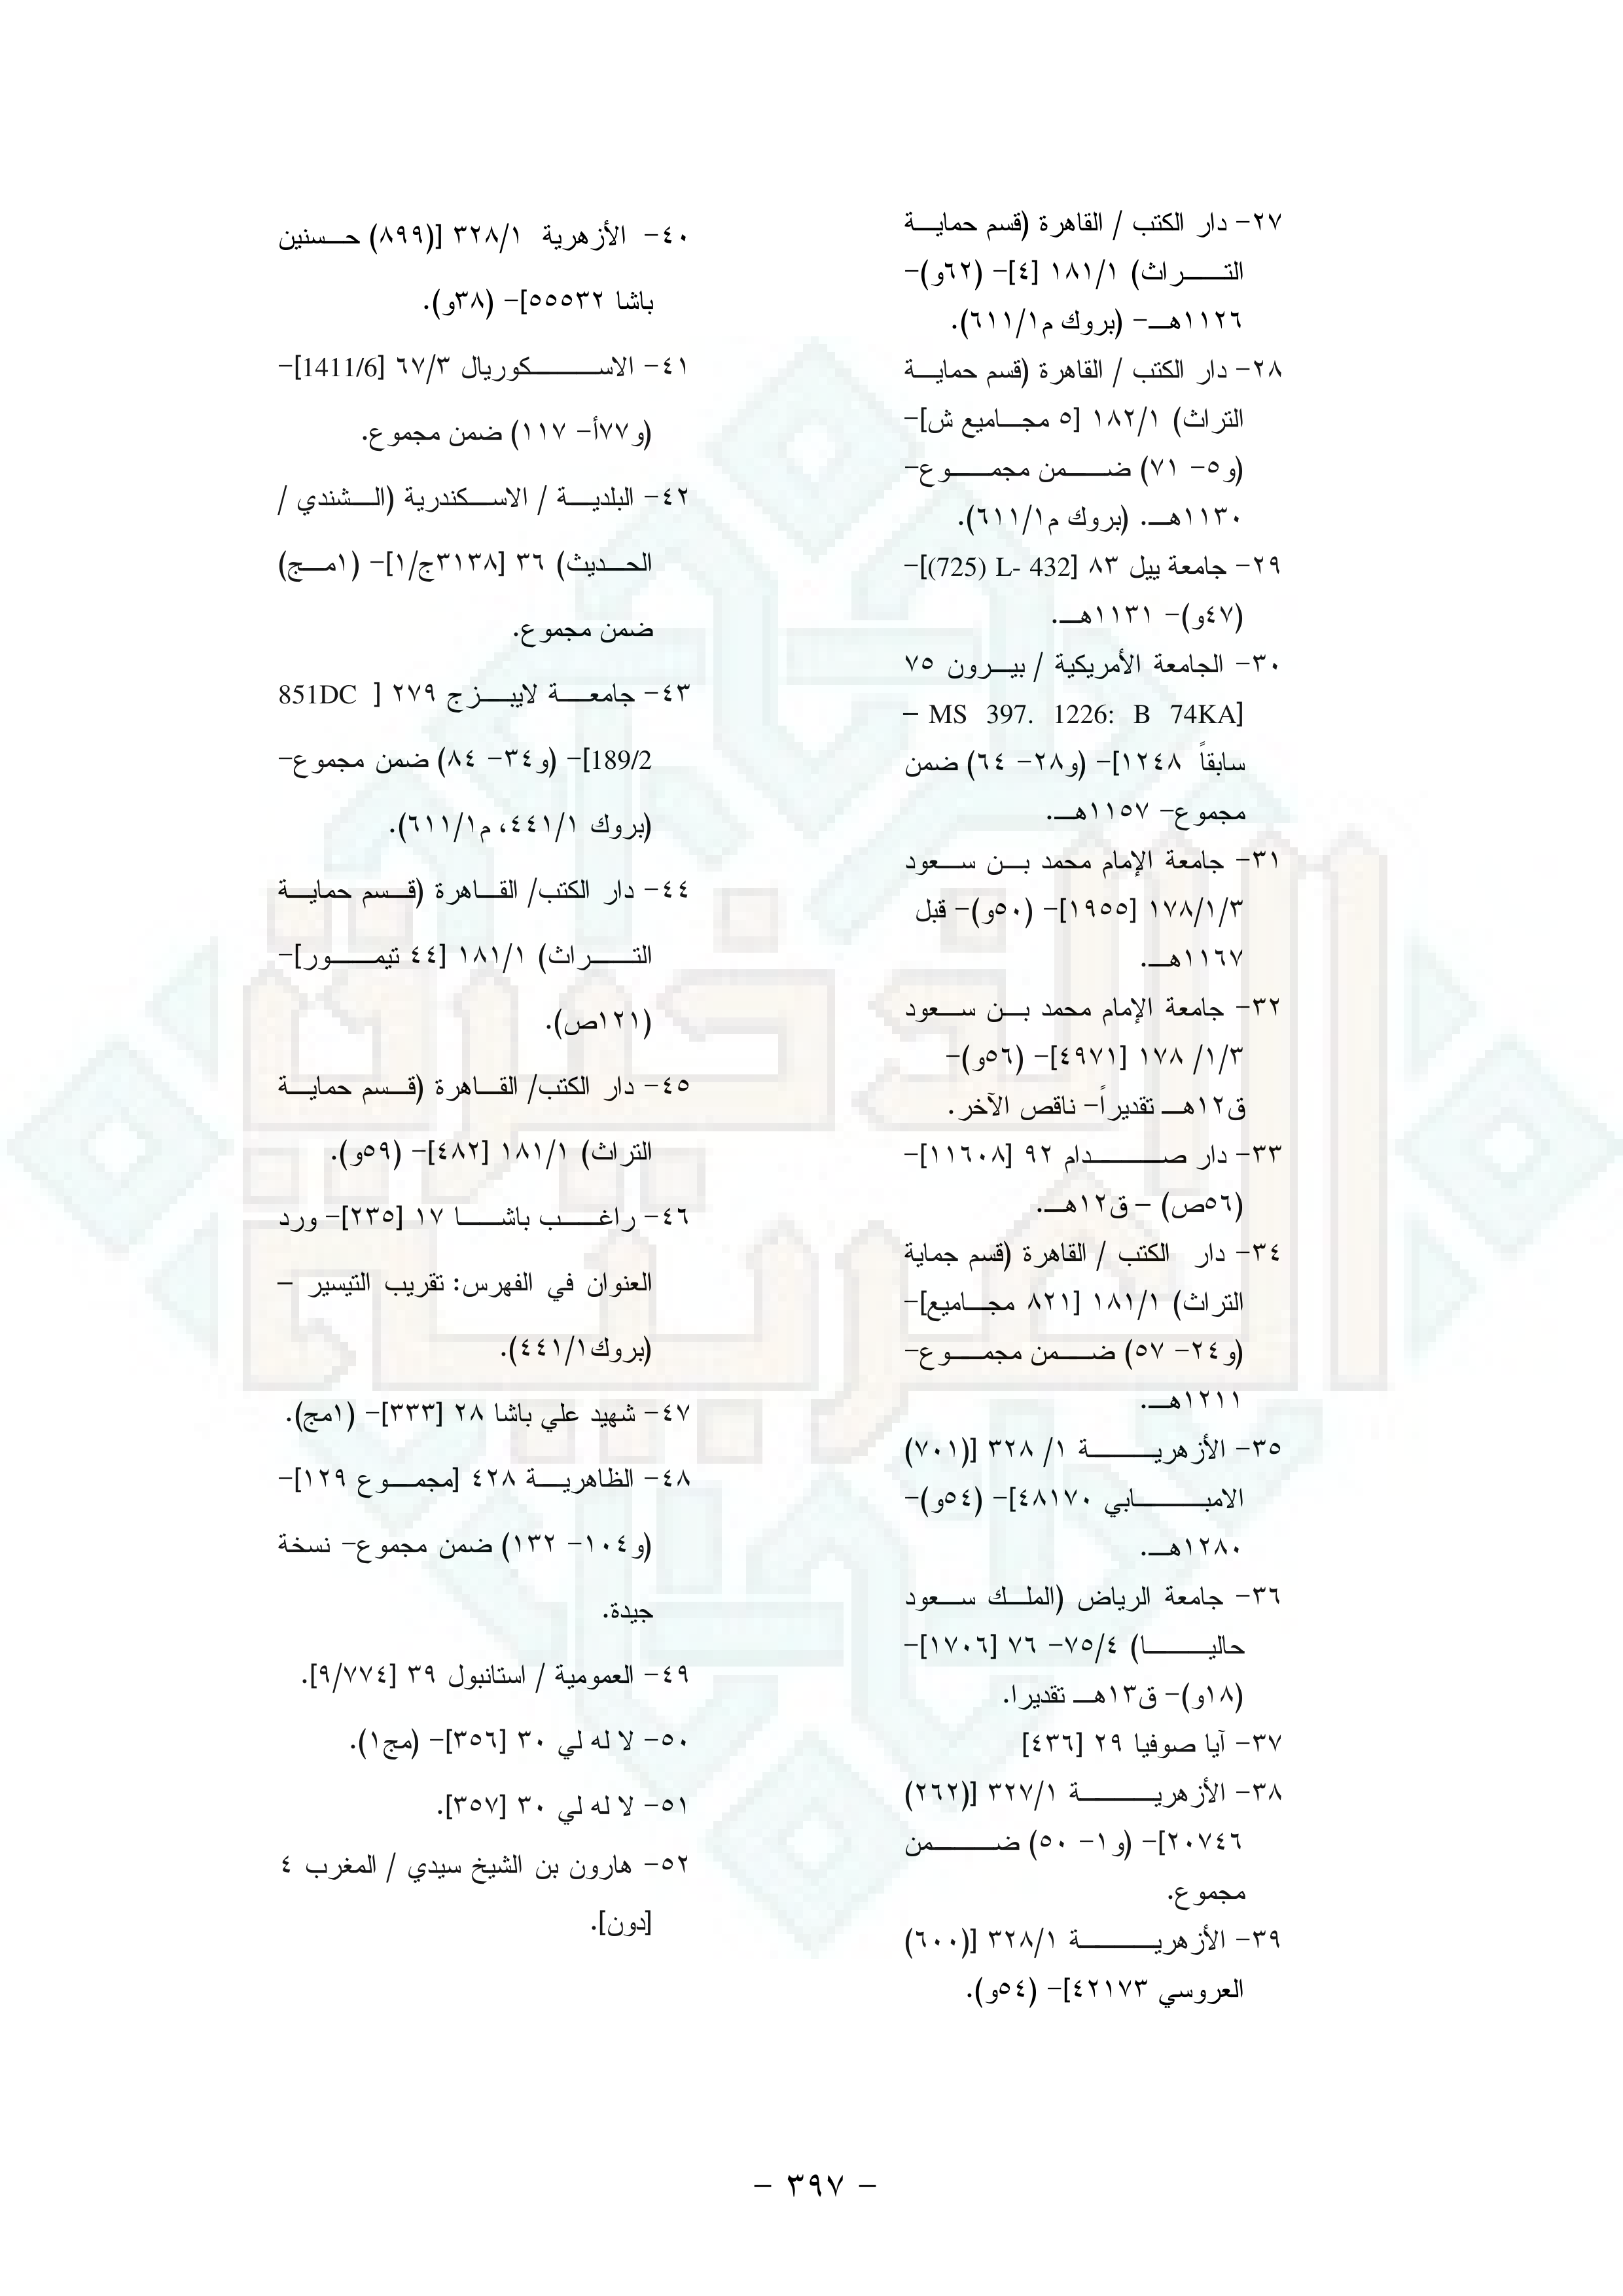 ٢٧- دار الكتب / القاهرة (قسم حمايـــة
التــــــراث) ١٨١/١ [٤]- (٦٢و)-
١١٢٦هــ- (بروك م٦١١/١).
٢٨- دار الكتب / القاهرة (قسم حمايـــة
التراث) ١٨٢/١ [٥ مجـــاميع ش]-
(و٥- ٧١) ضـــــمن مجمـــــوع-
١١٣٠هــ. (بروك م٦١١/١).
٢٩- جامعة ييل ٨٣ [725) L- 432)]-
(٤٧و)- ١١٣١هــ.
٣٠- الجامعة الأمريكية / بيـــرون ٧٥
[MS 397. 1226: B 74KA –
سابقاً ١٢٤٨]- (و٢٨- ٦٤) ضمن
مجموع- ١١٥٧هــ.
٣١- جامعة الإمام محمد بـــن ســـعود
١٧٨/١/٣ [١٩٥٥]- (٥٠و)- قبل
١١٦٧هــ.
٣٢- جامعة الإمام محمد بـــن ســـعود
١/٣/ ١٧٨ [٤٩٧١]- (٥٦و)-
ق١٢هــ تقديراً- ناقص الآخر.
٣٣- دار صــــــــدام ٩٢ [١١٦٠٨]-
(٥٦ص) – ق١٢هــ.
٣٤- دار الكتب / القاهرة (قسم جماية
التراث) ١٨١/١ [٨٢١ مجـــاميع]-
(و٢٤- ٥٧) ضـــــمن مجمـــــوع-
١٢١١هــ.
٣٥- الأزهريــــــــــة ١/ ٣٢٨ [(٧٠١)
الامبــــــــــابي ٤٨١٧٠]- (٥٤و)-
١٢٨٠هــ.
٣٦- جامعة الرياض (الملـــك ســـعود
حاليـــــــــا) ٧٥/٤- ٧٦ [١٧٠٦]-
(١٨و)- ق١٣هــ تقديرا.
٣٧- آيا صوفيا ٢٩ [٤٣٦]
٣٨- الأزهريــــــــــة ٣٢٧/١ [(٢٦٢)
٢٠٧٤٦]- (و١- ٥٠) ضــــــــمن
مجموع.
٣٩- الأزهريــــــــــة ٣٢٨/١ [(٦٠٠)
العروسي ٤٢١٧٣]- (٥٤و).
٤٠- الأزهرية ٣٢٨/١ [(٨٩٩) حـــسنين
باشا ٥٥٥٣٢]- (٣٨و).
٤١- الاســــــــــكوريال ٦٧/٣ [1411/6]-
(و٧٧أ- ١١٧) ضمن مجموع.
٤٢- البلديـــة / الاســـكندرية (الـــشندي /
الحـــديث) ٣٦ [٣١٣٨ج/١]- (١مـــج)
ضمن مجموع.
٤٣- جامعـــــة لايبـــــزج ٢٧٩ [ 851DC
189/2]- (و٣٤- ٨٤) ضمن مجموع-
(بروك ٤٤١/١، م٦١١/١).
٤٤- دار الكتب/ القـــاهرة (قـــسم حمايـــة
التــــــراث) ١٨١/١ [٤٤ تيمــــــور]-
(١٢١ص).
٤٥- دار الكتب/ القـــاهرة (قـــسم حمايـــة
التراث) ١٨١/١ [٤٨٢]- (٥٩و).
٤٦- راغـــــب باشـــــا ١٧ [٢٣٥]- ورد
العنوان في الفهرس: تقريب التيسير –
(بروك٤٤١/١).
٤٧- شهيد علي باشا ٢٨ [٣٣٣]- (١مج).
٤٨- الظاهريـــة ٤٢٨ [مجمـــوع ١٢٩]-
(و١٠٤- ١٣٢) ضمن مجموع- نسخة
جيدة.
٤٩- العمومية / استانبول ٣٩ [٩/٧٧٤].
٥٠- لا له لي ٣٠ [٣٥٦]- (مج١).
٥١- لا له لي ٣٠ [٣٥٧].
٥٢- هارون بن الشيخ سيدي / المغرب ٤
[دون].
- ٣٩٧ -